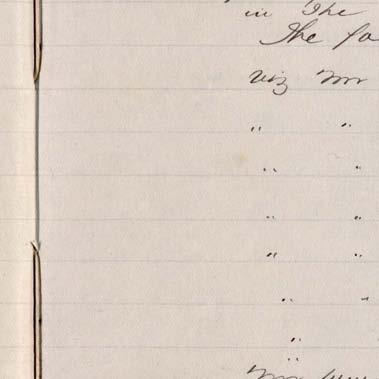 in The
The fo
viz Mr
" "
" "
" "
" "
" "
"
"
Mr